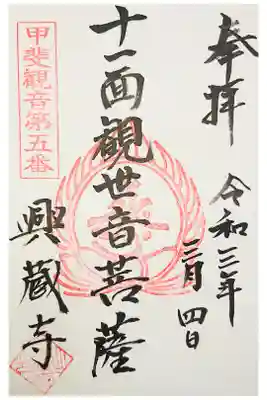 奉拝
令和三年
三月四日
十一面觀世音菩薩
甲斐觀音第五番
興蔵寺